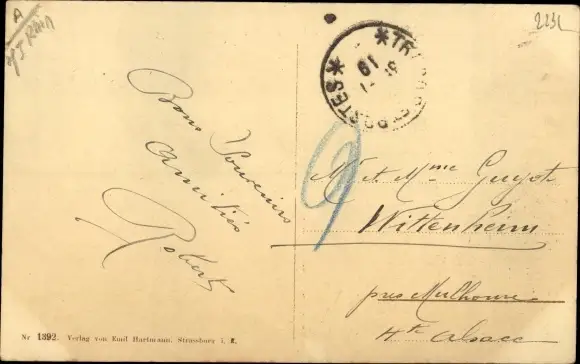 A
2231
TR
* POSTES *
19
Bons Souvenirs
amitiés
Robert
9
Mr et Mme Guyot
Wittenheim
près Mulhouse
Hte Alsace
Nr 1392. Verlag von Emil Hartmann, Strassburg i. E.